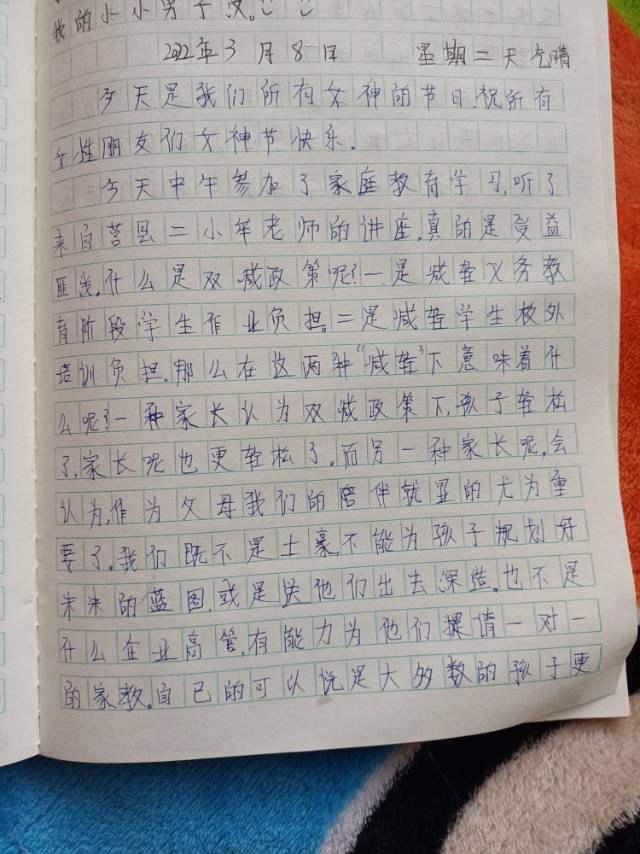 我的小小男子汉。
2022年3月8日 星期二 天气晴
今天是我们所有女神的节日,祝所有
女性朋友们女神节快乐.
今天中午参加了家庭教育学习,听了
来自莒县二小牟老师的讲座,真的是受益
匪浅,什么是双减政策呢?一是减轻义务教
育阶段学生作业负担。二是减轻学生校外
培训负担.那么在这两种“减轻”下意味着什
么呢?一种家长认为双减政策下,孩子轻松
了,家长呢也更轻松了,而另一种家长呢,会
认为,作为父母我们的陪伴就显的尤为重
要了,我们既不是土豪,不能为孩子规划好
未来的蓝图,或是送他们出去深造.也不是
什么企业高管,有能力为他们提请一对一
的家教,自己的可以说是大多数的孩子更